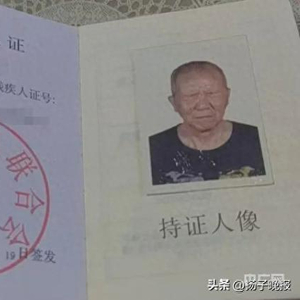 证
残疾人证号:
联合会
19日签发
持证人像
央广网
头条@扬子晚报